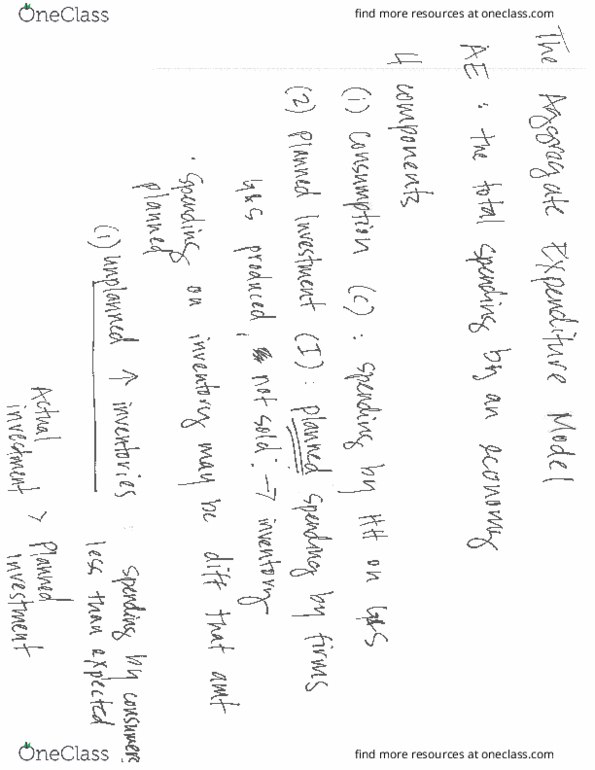 OneClass
find more resources at oneclass.com
The Aggregate Expenditure Model
AE : the total spending by an economy
4 components
(1) Consumption (C) : spending by HH on G&S
(2) Planned Investment (I) : planned spending by firms
G&S produced, not sold : → inventory
· Spending on inventory may be diff that amt
planned
(1) unplanned ↑ inventories : spending by consumers
less than expected
Actual investment > Planned investment
OneClass
find more resources at oneclass.com